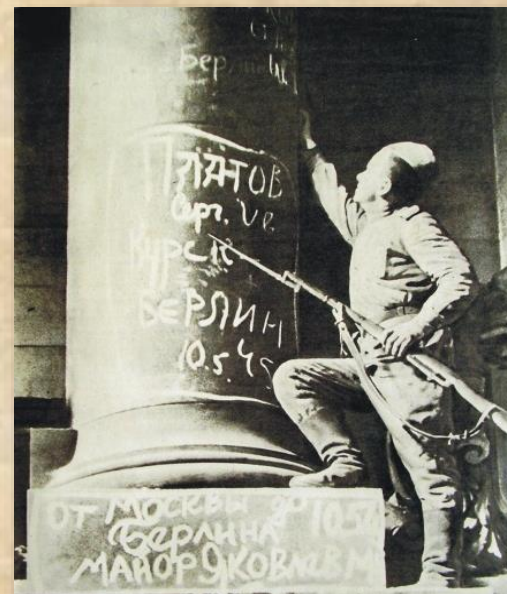 Берлин
ПЛАТОВ
Серг.
Курск
БЕРЛИН
10.5.45
ОТ МОСКВЫ до
Берлина 10.5
МАЙОР ЯКОВЛЕВ М